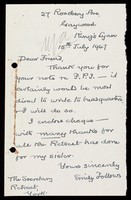 27 Rosebery Ave
Gaywood
King's Lynn
15th July 1947
Dear Friend,
Thank you for
your note re F.P.I. — it
certainly would be most
direct to write to headquarters
if I will do so.
I enclose cheque —
with many thanks for
all the Retreat has done
for my sister.
Yours sincerely
Emily Follows
The Secretary
Retreat,
York.